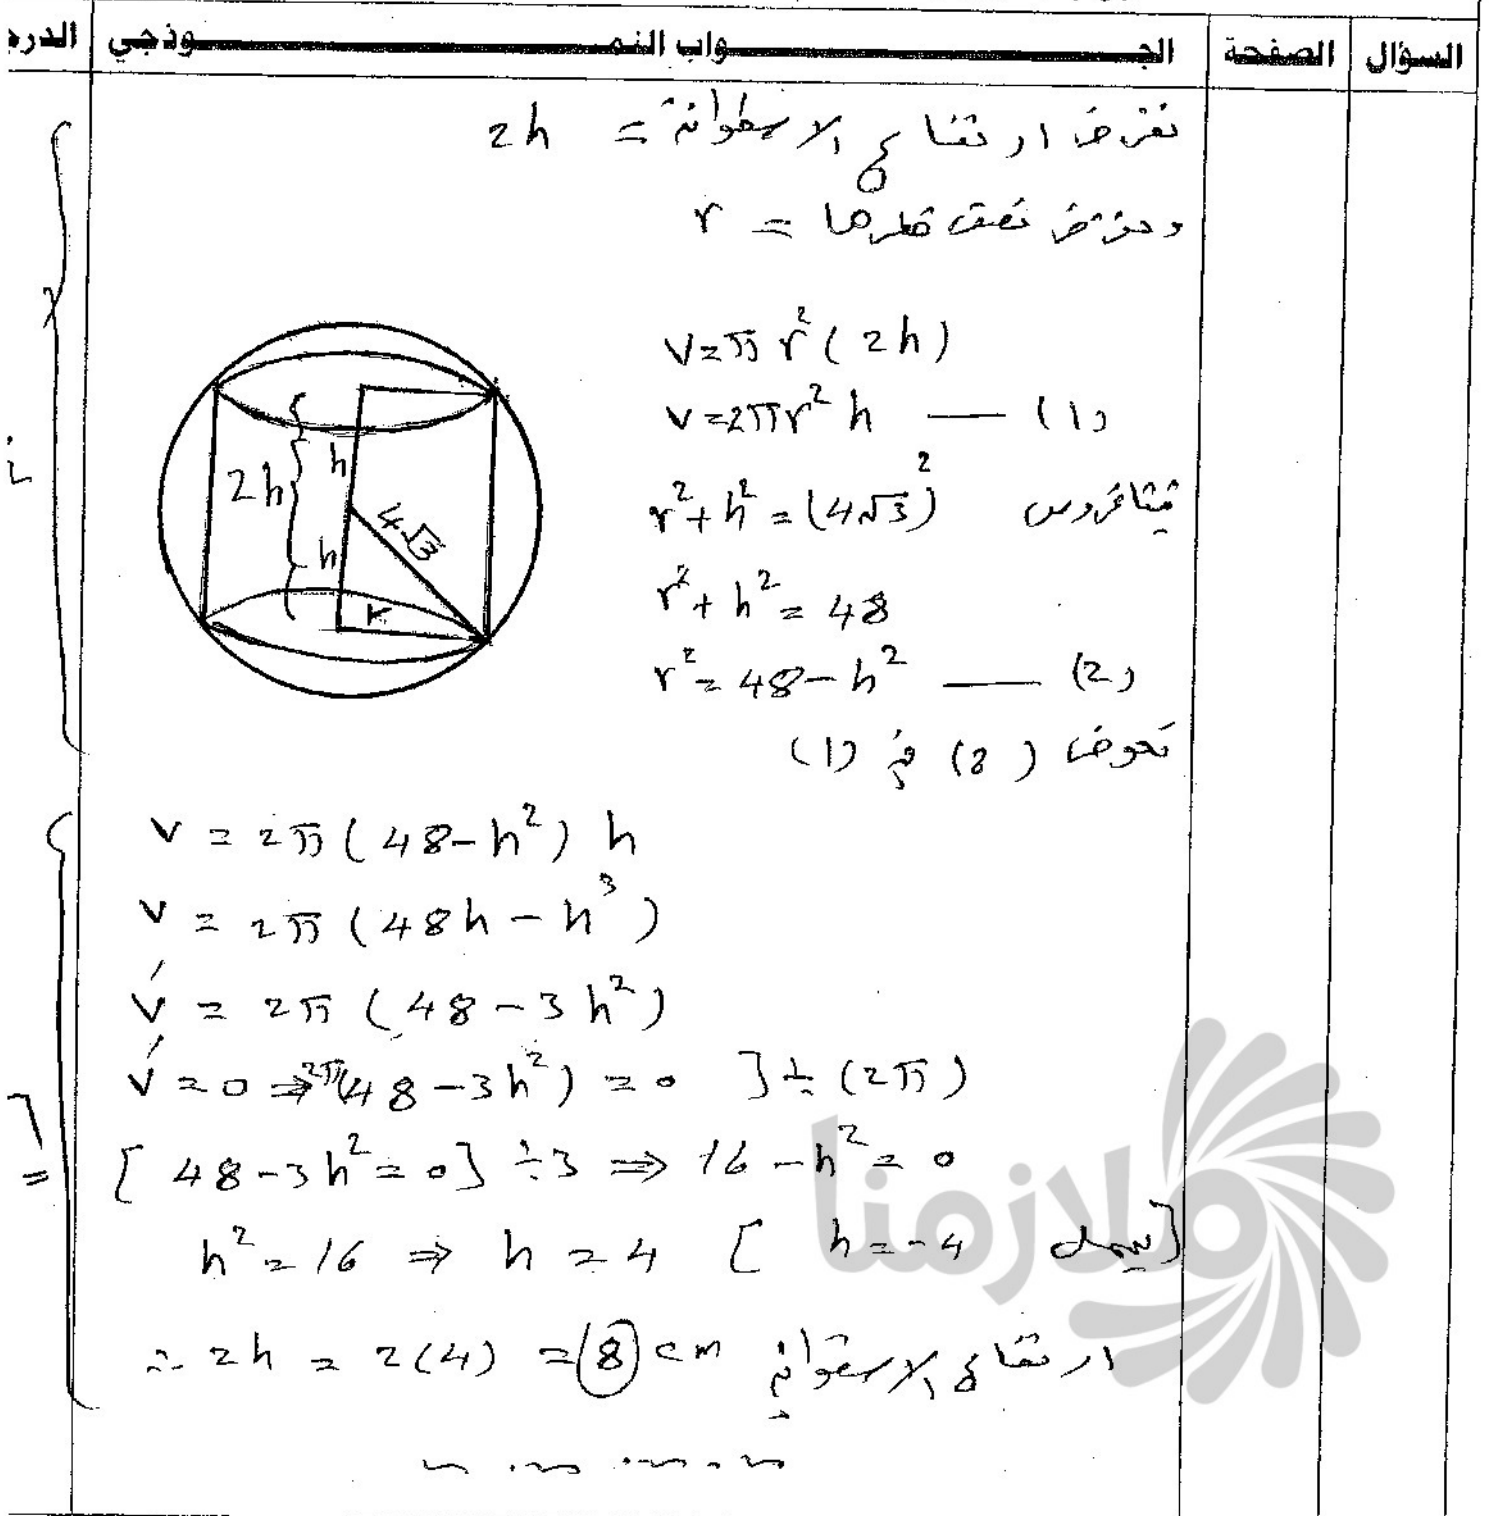 السؤال الصفحة الجـــواب النمـــوذجي الدرج
نفرض ارتفاع الاسطوانة = 2h
ونفرض نصف قطرها = r
V=π r²(2h)
V=2πr² h — (1)
r²+h²=(4√3)² فيثاغورس
r²+h²=48
r²=48-h² — (2)
نعوض (2) في (1)
2h
h
h
4√3
r
V = 2π(48-h²) h
V = 2π (48h - h³)
V́ = 2π (48-3h²)
V́=0 ⇒ 2π(48-3h²) = 0 ] ÷ (2π)
[48-3h²=0] ÷3 ⇒ 16-h²=0
h²=16 ⇒ h=4 [ h=-4 يهمل ]
∴ 2h = 2(4) = 8 cm ارتفاع الاسطوانة
ملازمنا